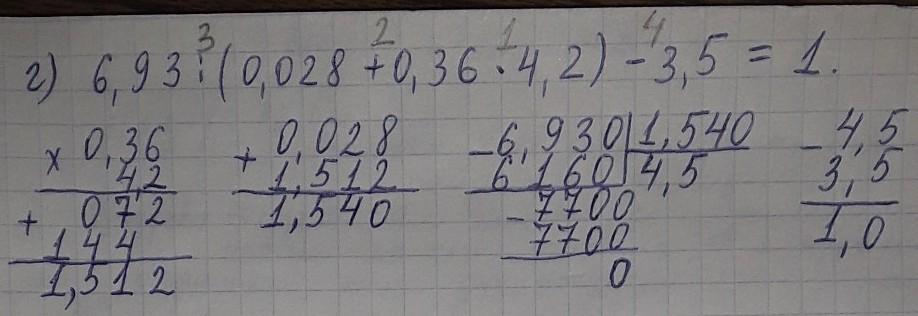 3 2 1 4
г) 6,93:(0,028+0,36·4,2)-3,5=1.
× 0,36 + 0,028 -6,930|1,540 -4,5
4,2 1,512 6 160|4,5 3,5
+ 072 1,540 -7700 1,0
144 7700
1,512 0